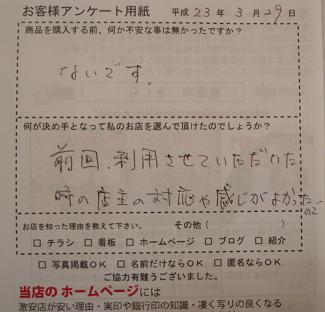 お客様アンケート用紙 平成 23 年 3 月 29 日
商品を購入する前、何か不安な事は無かったですか？
ないです.
何が決め手となって私のお店を選んで頂けたのでしょうか？
前回、利用させていただいた
時の店主の対応や感じがよかったので
お店を知った理由を教えて下さい。 その他（ ）
□ チラシ □ 看板 □ ホームページ □ ブログ □ 紹介
□ 写真掲載ＯＫ □ 名前だけならＯＫ □ 匿名ならＯＫ
ご協力有難うございました。
当店の ホームページには
激安店が安い理由・実印や銀行印の知識・凄く写りの良くなる